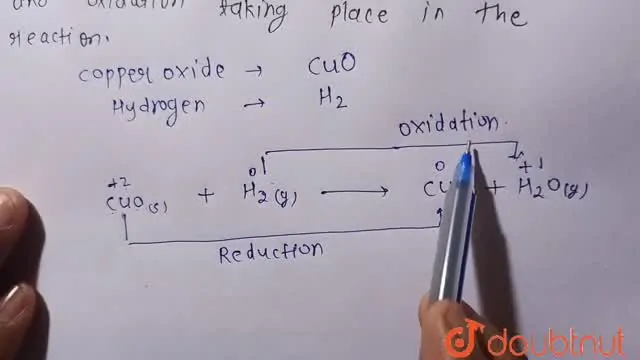 and oxidation taking place in the
reaction.
copper oxide → CuO
Hydrogen → H2
oxidation.
+2 0 0 +1
CuO(s) + H2(g) → Cu + H2O(g)
Reduction
doubtnut